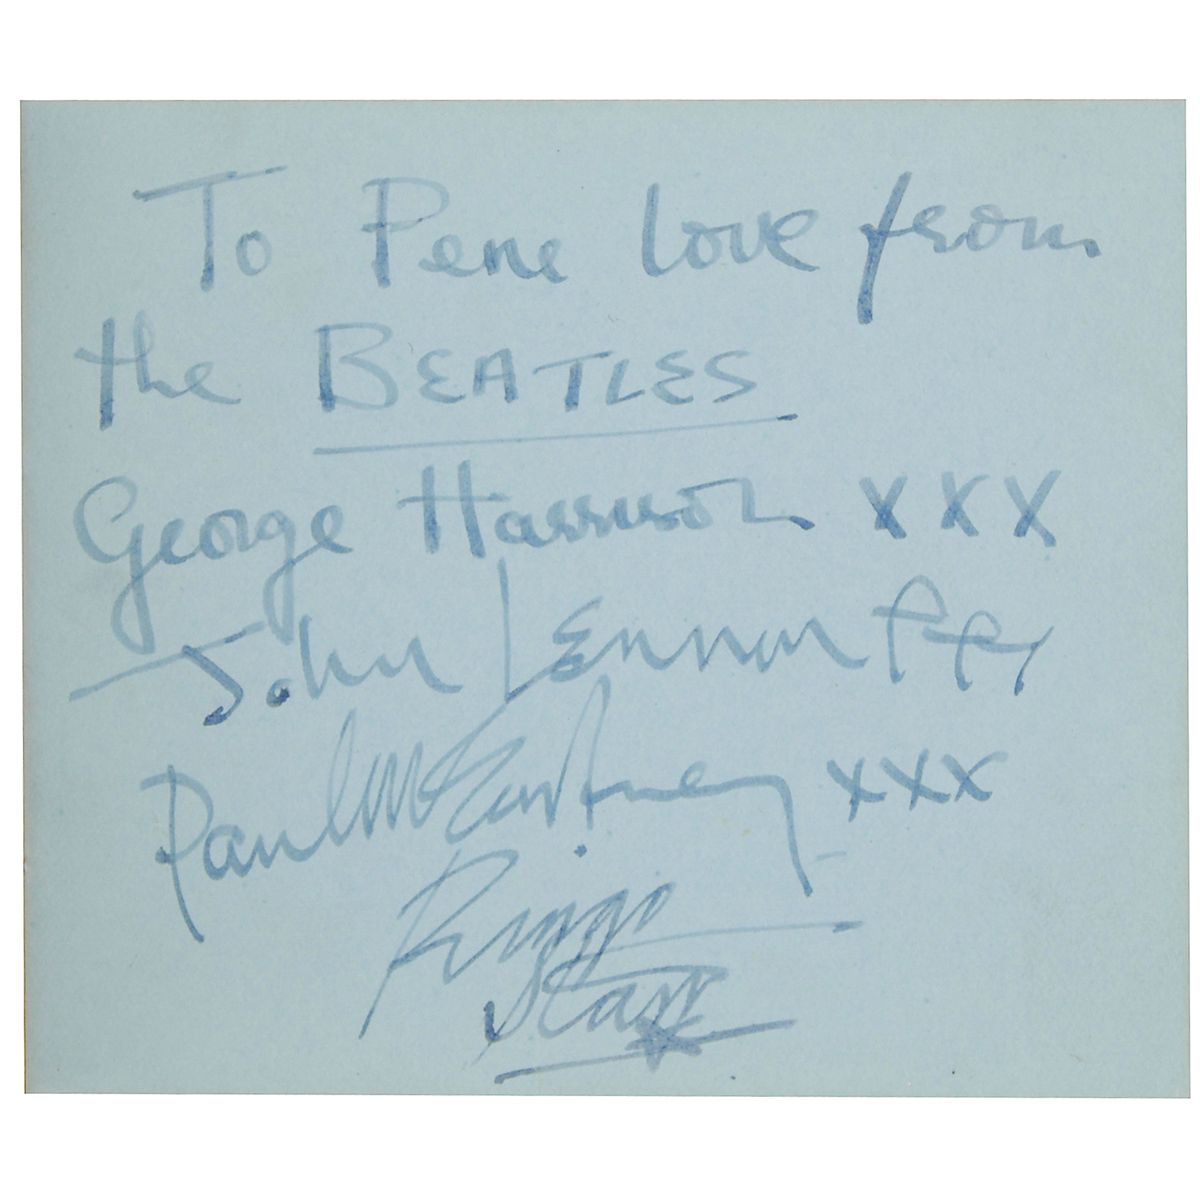 To Pene love from
the BEATLES
George Harrison xxx
John Lennon xxx
Paul McCartney xxx
Ringo
Starr